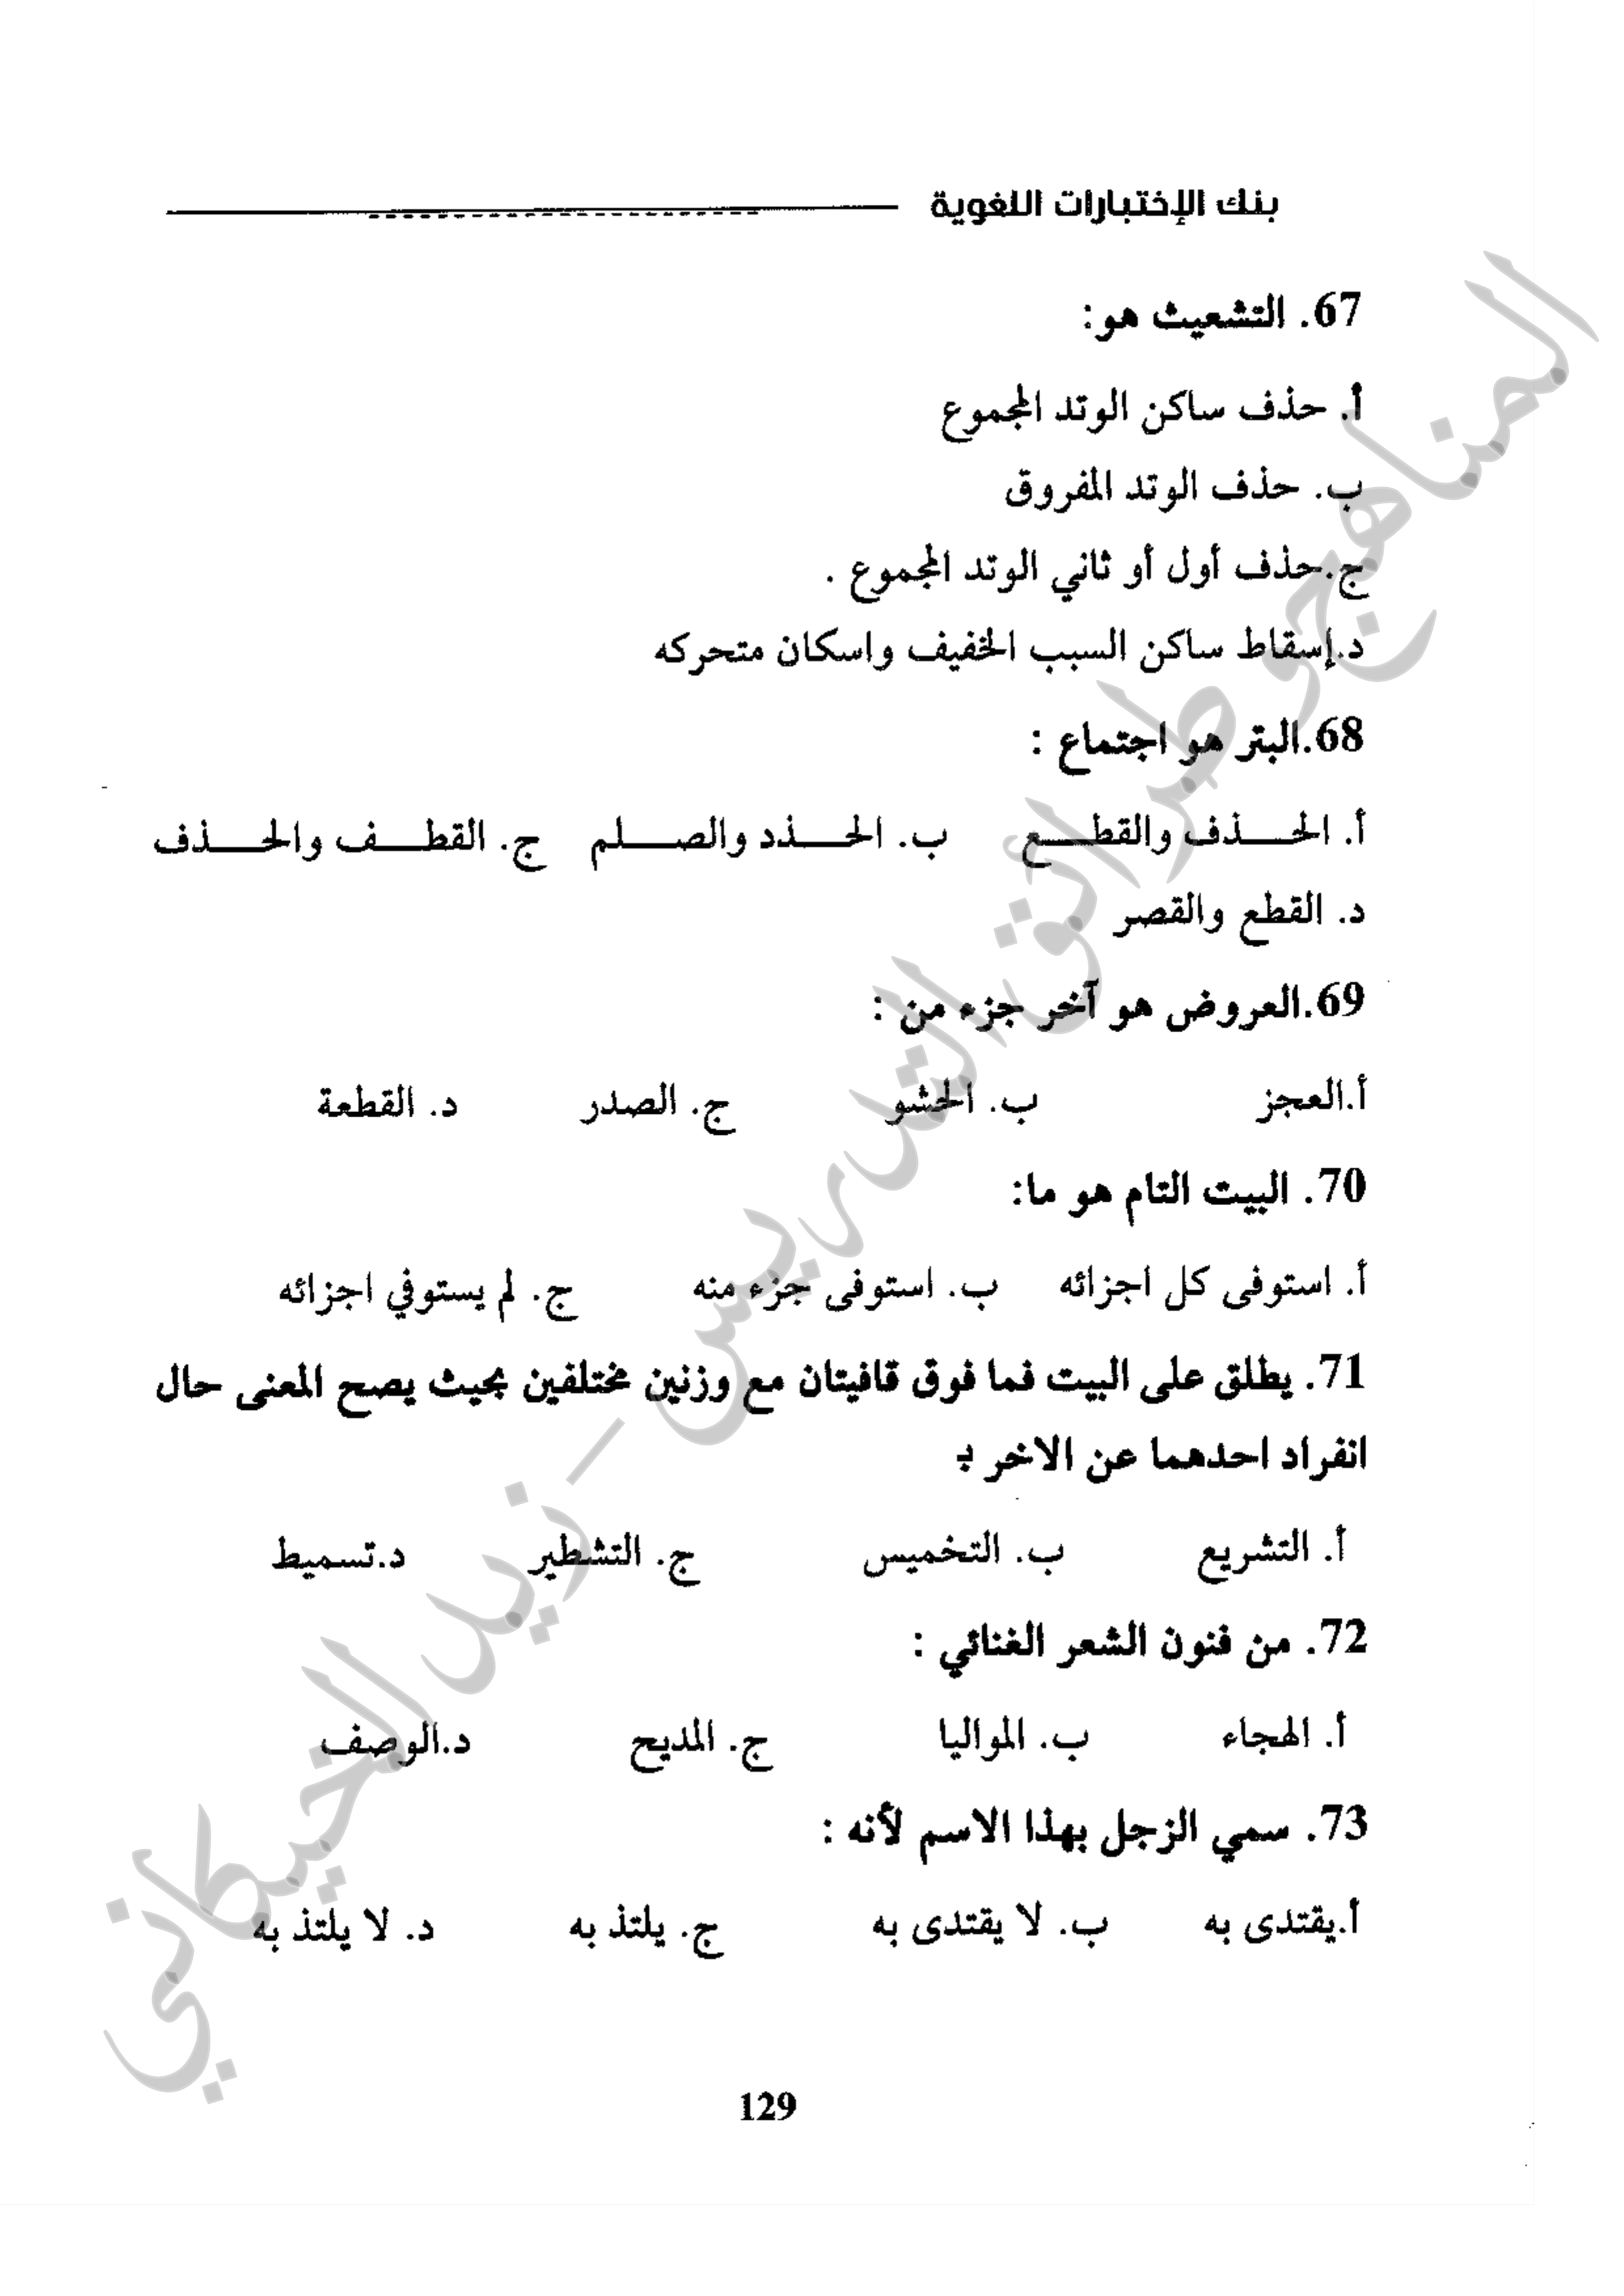 بنك الإختبارات اللغوية
67. التشعيث هو:
أ. حذف ساكن الوتد المجموع
ب. حذف الوتد المفروق
ج.حذف أول أو ثاني الوتد المجموع .
د.إسقاط ساكن السبب الخفيف واسكان متحركه
68.البتر هو اجتماع :
أ. الحذف والقطع ب. الحذذ والصلم ج. القطف والحذف
د. القطع والقصر
69.العروض هو آخر جزء من :
أ.العجز ب. الحشو ج. الصدر د. القطعة
70. البيت التام هو ما:
أ. استوفى كل اجزائه ب. استوفى جزء منه ج. لم يستوفي اجزائه
71. يطلق على البيت فما فوق قافيتان مع وزنين مختلفين بحيث يصح المعنى حال
انفراد احدهما عن الاخر بـ
أ. التشريع ب. التخميس ج. التشطير د.تسميط
72. من فنون الشعر الغنائي :
أ. الهجاء ب. المواليا ج. المديح د.الوصف
73. سمي الزجل بهذا الاسم لأنه :
أ.يقتدى به ب. لا يقتدى به ج. يلتذ به د. لا يلتذ به
129
المناهج وطرائق التدريس - زيد الخيكاني